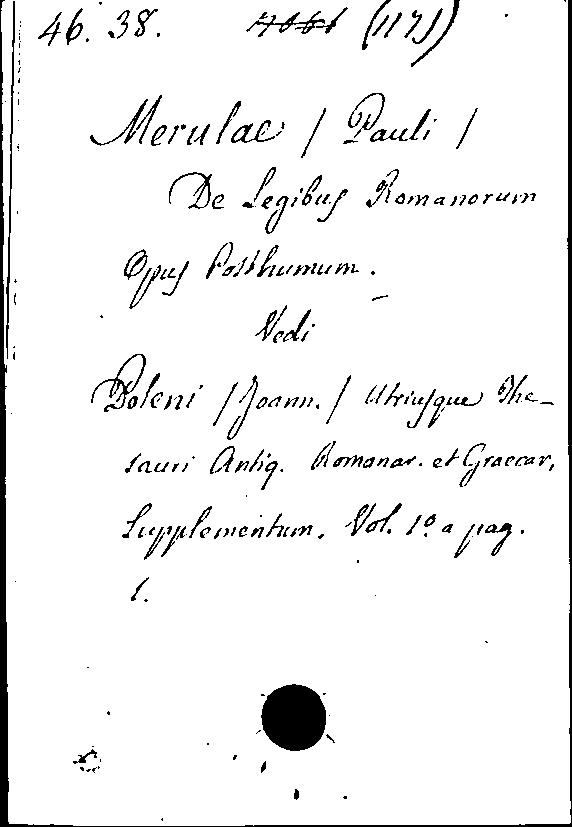 46. 38. (1171)
Merulae / Pauli /
De Legibus Romanorum
Opus Posthumum.
Vedi
Poleni / Joann. / Utriusque The-
sauri Antiq. Romanar. et Graecar,
Supplementum. Vol. 1º a pag.
1.